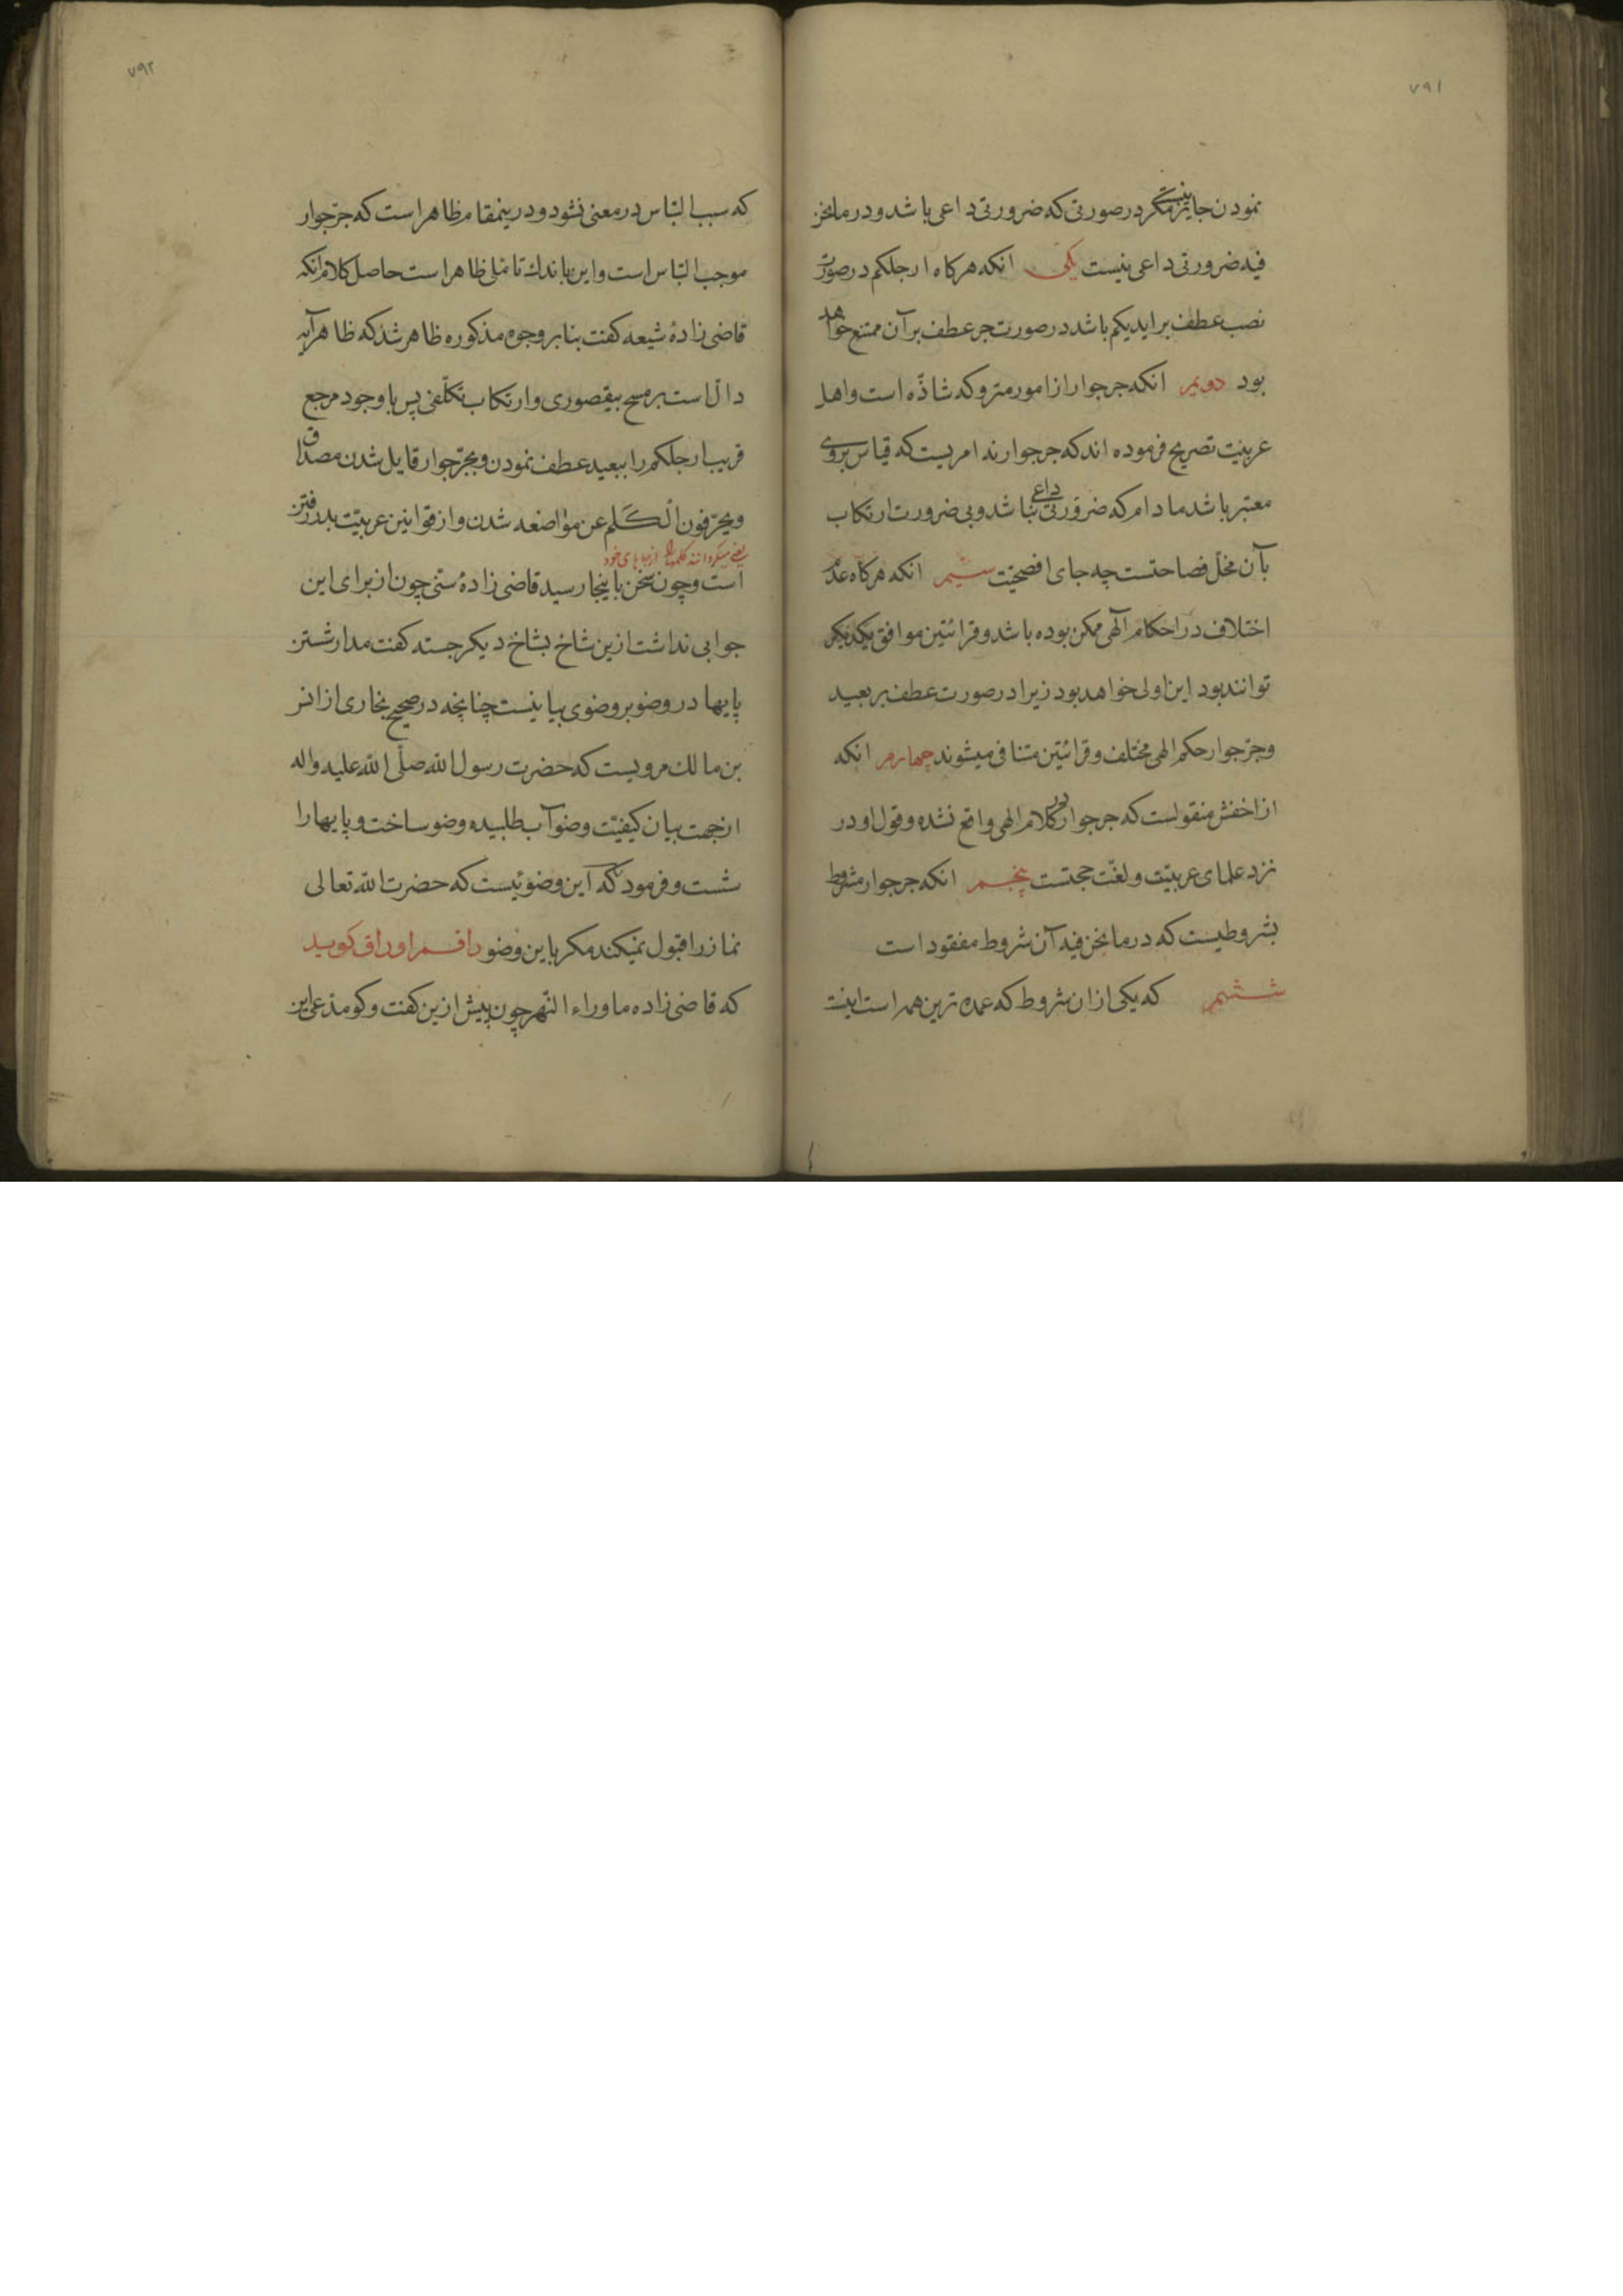 ۷۹۱
نمودن جایز نیست مگر در صورتی که ضرورتی داعی باشد و در مانحن
فیه ضرورتی داعی نیست یکی انکه هرکاه ارجلکم در صورت
نصب عطف بر ایدیکم باشد در صورت جر عطف بر آن ممتنع خواهد
بود دویم انکه جر جوار از امور متروکه شاذّه است واهل
عربیّت تصریح فرموده اند که جر جوار نه امریست که قیاس بروی
معتبر باشد مادام که ضرورتی داعی نباشد و بی ضرورت ارتکاب
بآن مخلّ فصاحتست چه جای افصحیّت سیم انکه هرکاه عدم
اختلاف در احکام آلهی ممکن بوده باشد و قرائتین موافق یکدیکر
توانند بود این اولی خواهد بود زیرا در صورت عطف بر بعید
وجرّ جوار حکم الهی مختلف و قرائتین متنافی میشوند چهارم انکه
از اخفش منقولست که جر جوار در کلام الهی واقع نشده و قول او در
نزد علمای عربیّت و لغّت حجتست پنجم انکه جر جوار مشروط
بشروطیست که در مانحن فیه آن شروط مفقود است
ششم که یکی از ان شروط که عمده ترین همه است اینست
۷۹۲
که سبب التباس در معنی نشود و درینمقام ظاهر است که جرّ جوار
موجب التباس است واین باندك تاملی ظاهر است حاصل کلام انکه
قاضی زادهٔ شیعه کفت بنابر وجوه مذکوره ظاهر شد که ظاهر آیه
دالّ است بر مسح بیقصوری وارتکاب تکلّفی پس باوجود مرجع
قریب ارجلکم را ببعید عطف نمودن و بجرّ جوار قایل شدن مصداق
ویحرّفون الکَلم عن مواضعه شدن و از قوانین عربیّت بدر رفتن
یعنی میکردانند کلمها را از جاهای خود
است و چون سخن باینجا رسید قاضی زادهٔ سنّی چون از برای این
جوابی نداشت ازین شاخ بشاخ دیکر جسته کفت مدار شستن
پایها در وضو بر وضوی بیانیست چنانچه در صحیح بخاری از انس
بن مالك مرویست که حضرت رسول الله صلّی الله علیه واله
ازجهت بیان کیفیّت وضو آب طلبیده وضو ساخت و پایها را
شست و فرمود که این وضوئیست که حضرت الله تعالی
نماز را قبول نمیکند مکر باین وضو راقم اوراق کوید
که قاضی زاده ماوراء النّهر چون پیش ازین کفت وکو مدّعی این